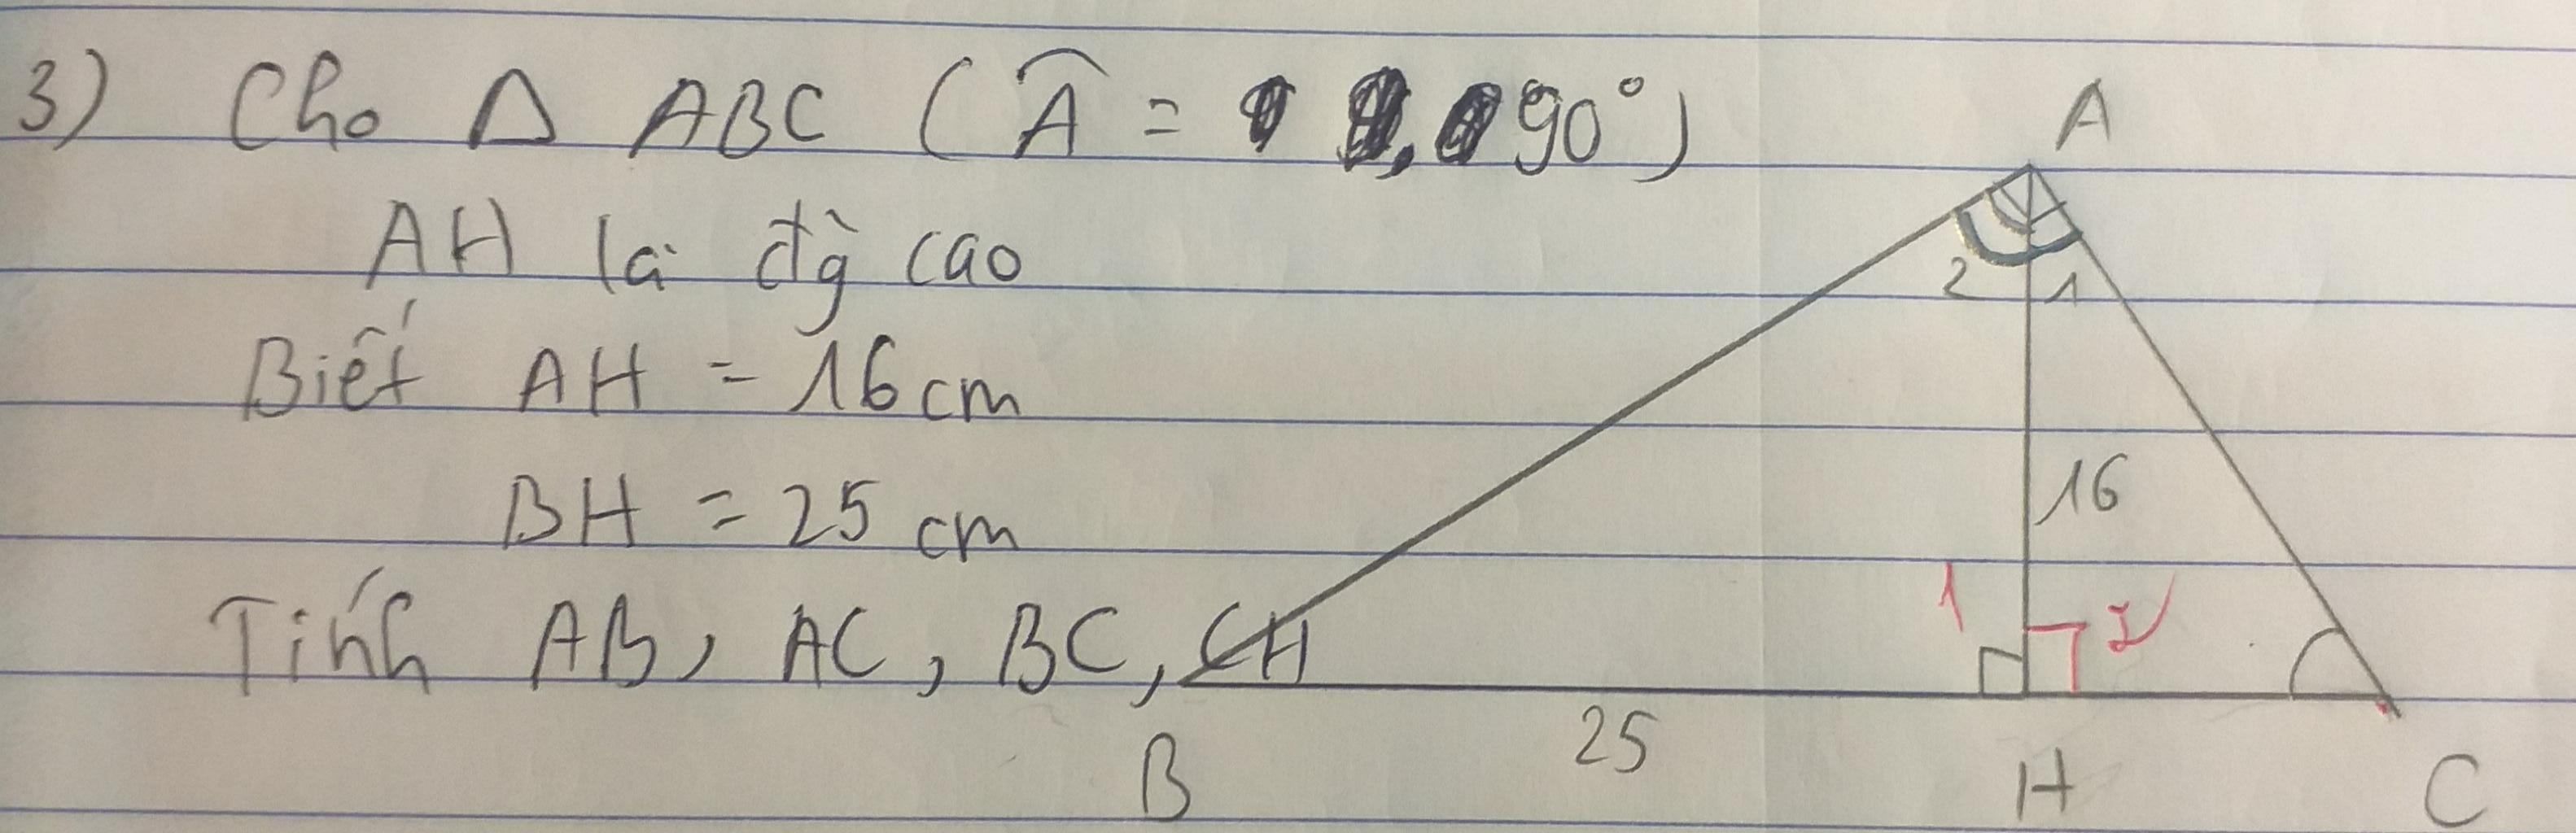 3) Cho Δ ABC ( Â = 90° )
AH là đg̀ cao
Biết AH = 16 cm
BH = 25 cm
Tính AB, AC, BC, CH
A
2 1
16
1 2
25
B H C